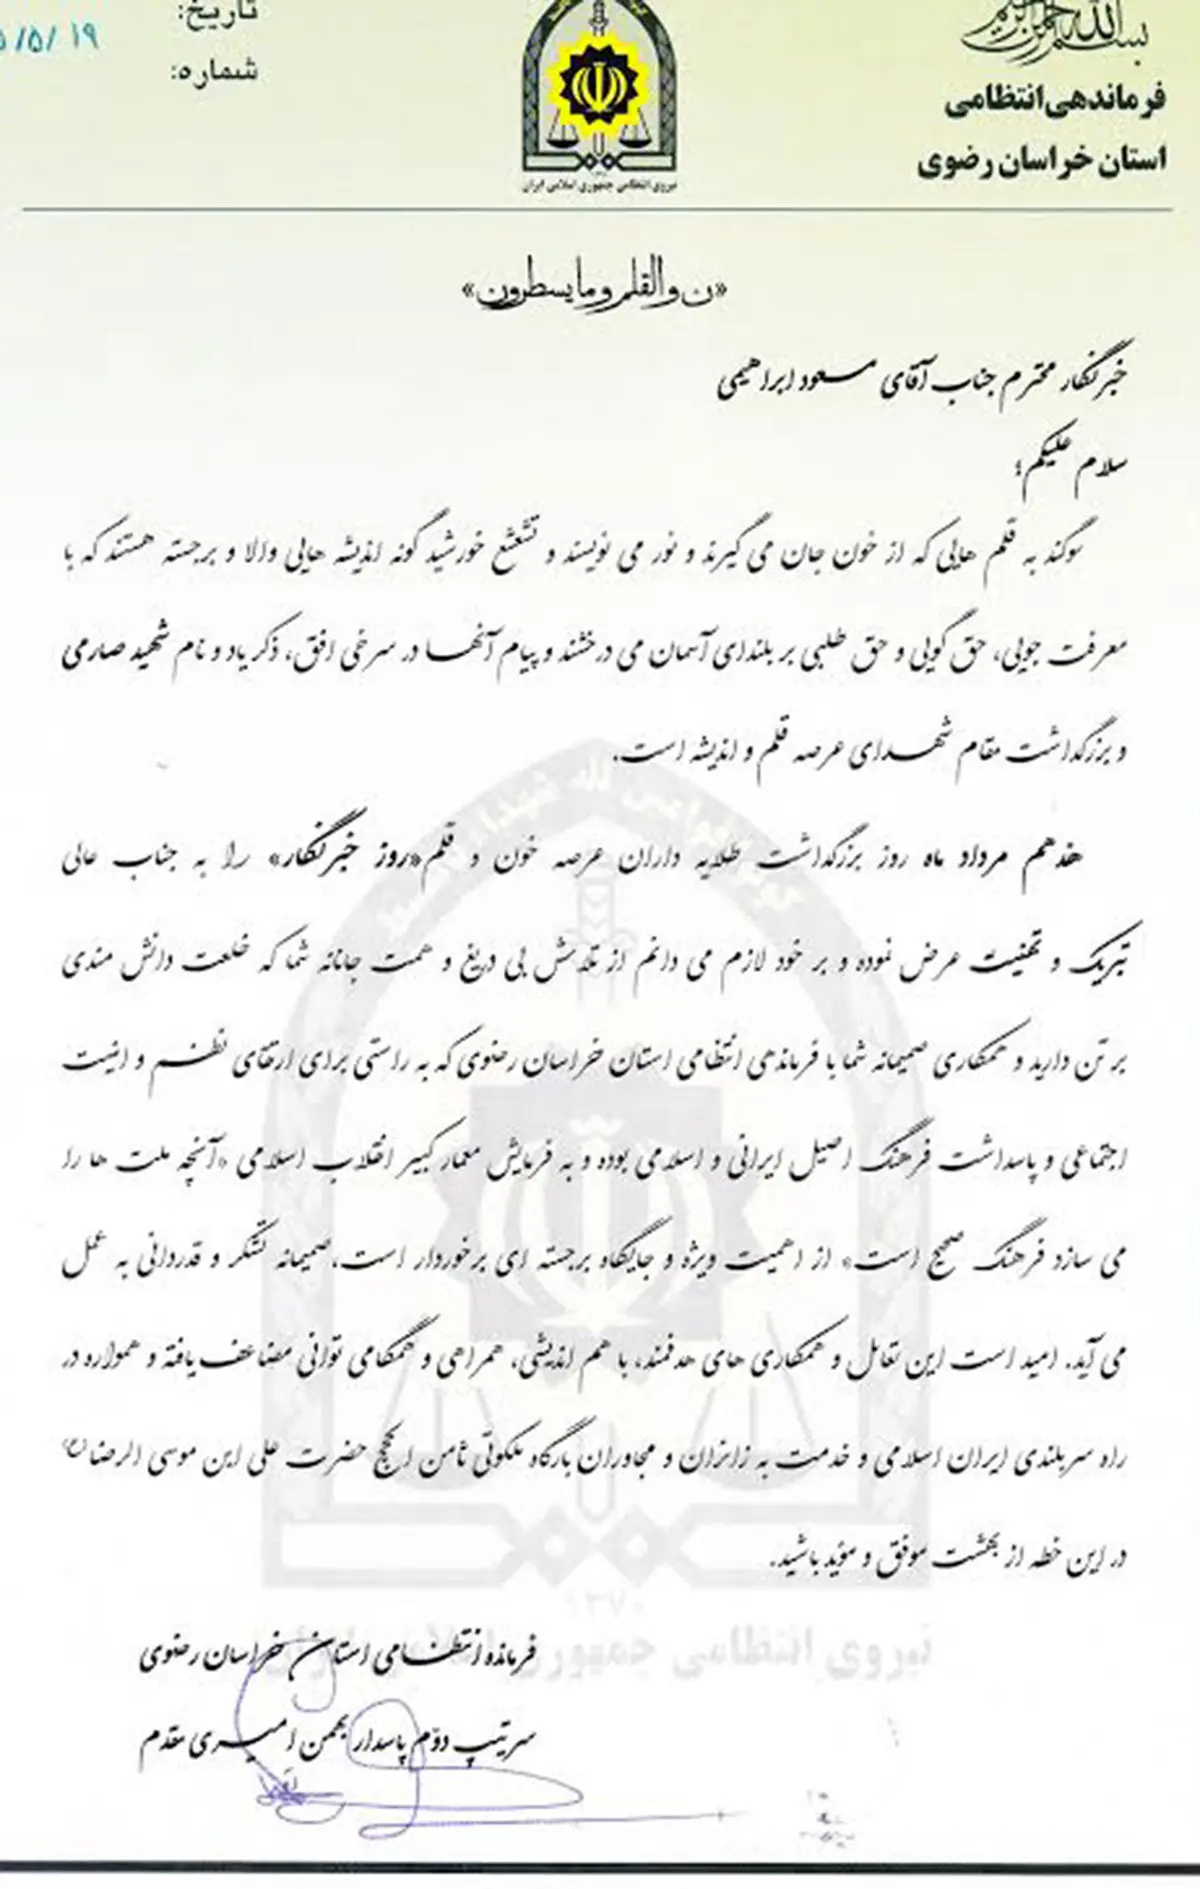 بسم الله الرحمن الرحیم
فرماندهی انتظامی
استان خراسان رضوی
نیروی انتظامی جمهوری اسلامی ایران
تاریخ:
۵/۵/۱۹
شماره:
«ن والقلم و ما یسطرون»
خبرنگار محترم جناب آقای مسعود ابراهیمی
سلام علیکم؛
سوگند به قلم هایی که از خون جان می گیرند و نور می نویسند و تشعشع خورشید گونه اندیشه هایی والا و برجسته هستند که با
معرفت جویی، حق گویی و حق طلبی بر بلندای آسمان می درخشند و پیام آنها در سرخی افق، ذکر یاد و نام شهید صارمی
و بزرگداشت مقام شهدای عرصه قلم و اندیشه است.
هفدهم مرداد ماه روز بزرگداشت طلایه داران عرصه خون و قلم «روز خبرنگار» را به جناب عالی
تبریک و تهنیت عرض نموده و بر خود لازم می دانم از تلاش بی دریغ و همت جانانه شما که خلعت دانش مندی
بر تن دارید و همکاری صمیمانه شما با فرماندهی انتظامی استان خراسان رضوی که به راستی برای ارتقای نظم و امنیت
اجتماعی و پاسداشت فرهنگ اصیل ایرانی و اسلامی بوده و به فرمایش معمار کبیر انقلاب اسلامی «آنچه ملت ها را
می سازد فرهنگ صحیح است» از اهمیت ویژه و جایگاه برجسته ای برخوردار است، صمیمانه تشکر و قدردانی به عمل
می آید. امید است این تعامل و همکاری های هدفمند، با هم اندیشی، همراهی و همگامی توانی مضاعف یافته و همواره در
راه سربلندی ایران اسلامی و خدمت به زائران و مجاوران بارگاه ملکوتی ثامن الحجج حضرت علی ابن موسی الرضا(ع)
در این خطه از بهشت موفق و مؤید باشید.
۱۳۷۰
نیروی انتظامی جمهوری اسلامی ایران
فرمانده انتظامی استان خراسان رضوی
سرتیپ دوّم پاسدار بهمن امیری مقدم